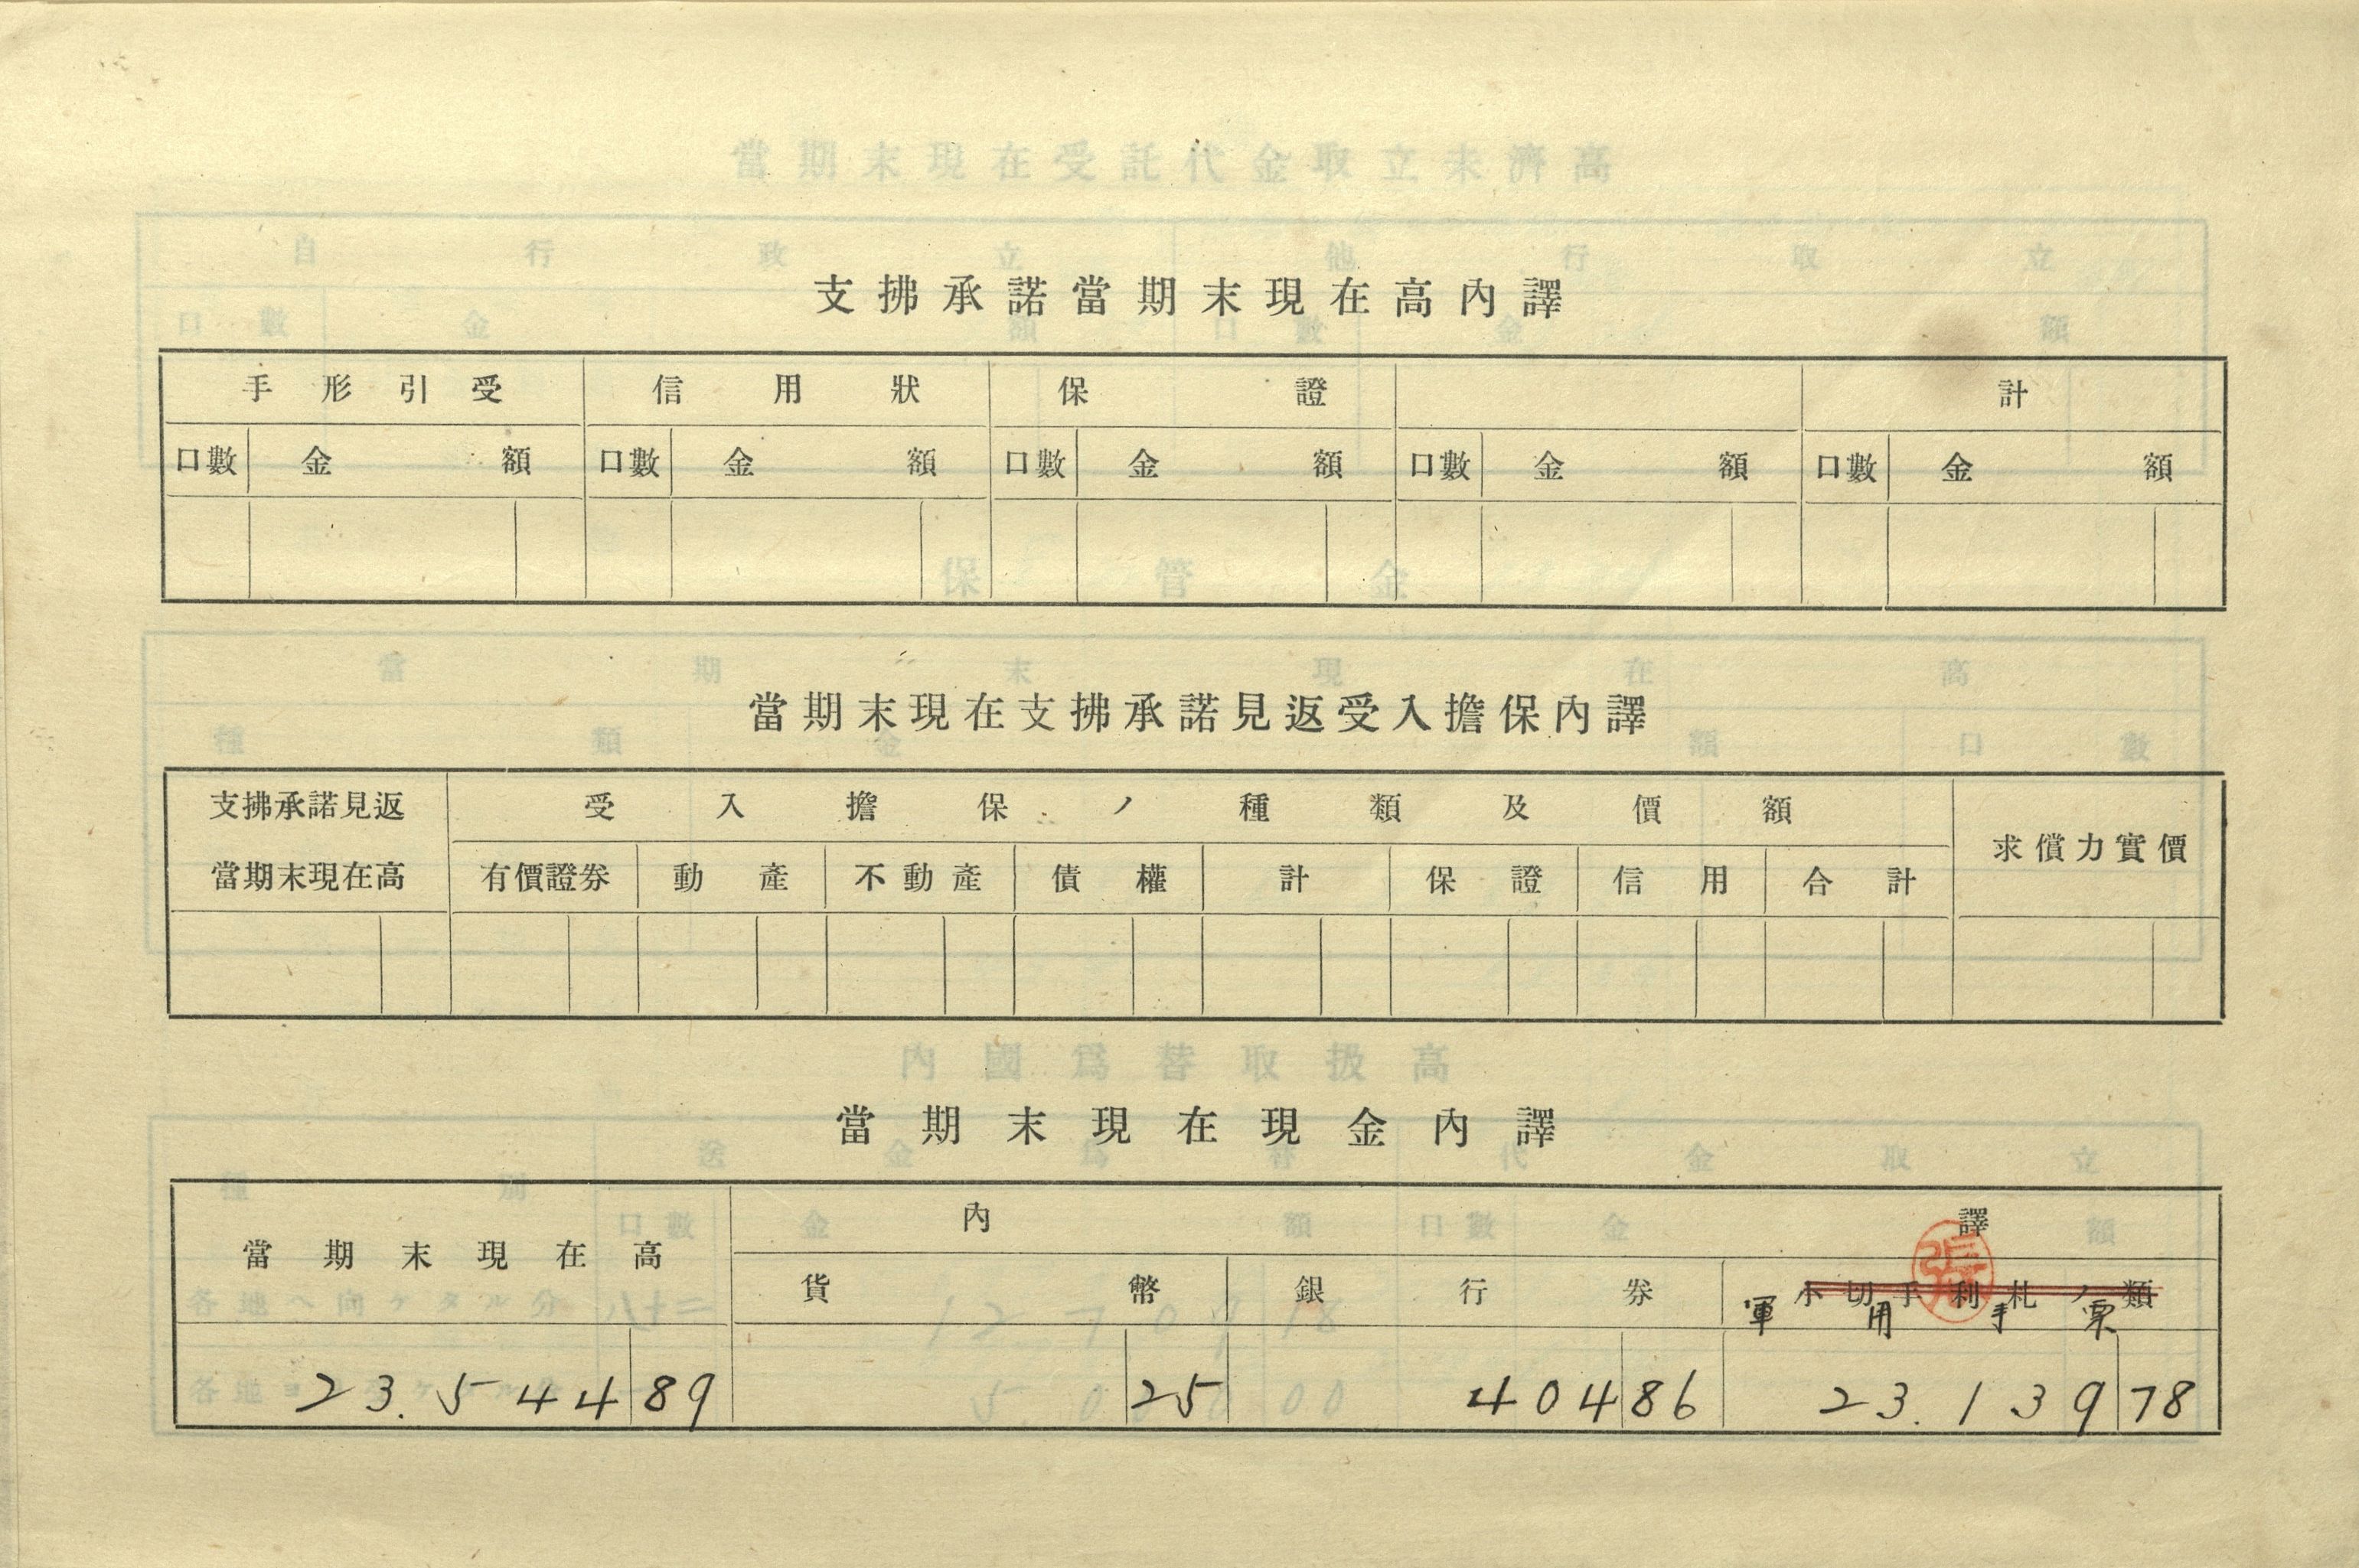 支拂承諾當期末現在高內譯
手形引受 信用狀 保證 計
口數 金額 口數 金額 口數 金額 口數 金額 口數 金額
當期末現在支拂承諾見返受入擔保內譯
支拂承諾見返 受入擔保ノ種類及價額 求償力實價
當期末現在高 有價證券 動產 不動產 債權 計 保證 信用 合計
當期末現在現金內譯
當期末現在高 內譯
貨幣 銀行券 小切手利札ノ類
軍用手票
張
23.544 89 25 404 86 23.139 78